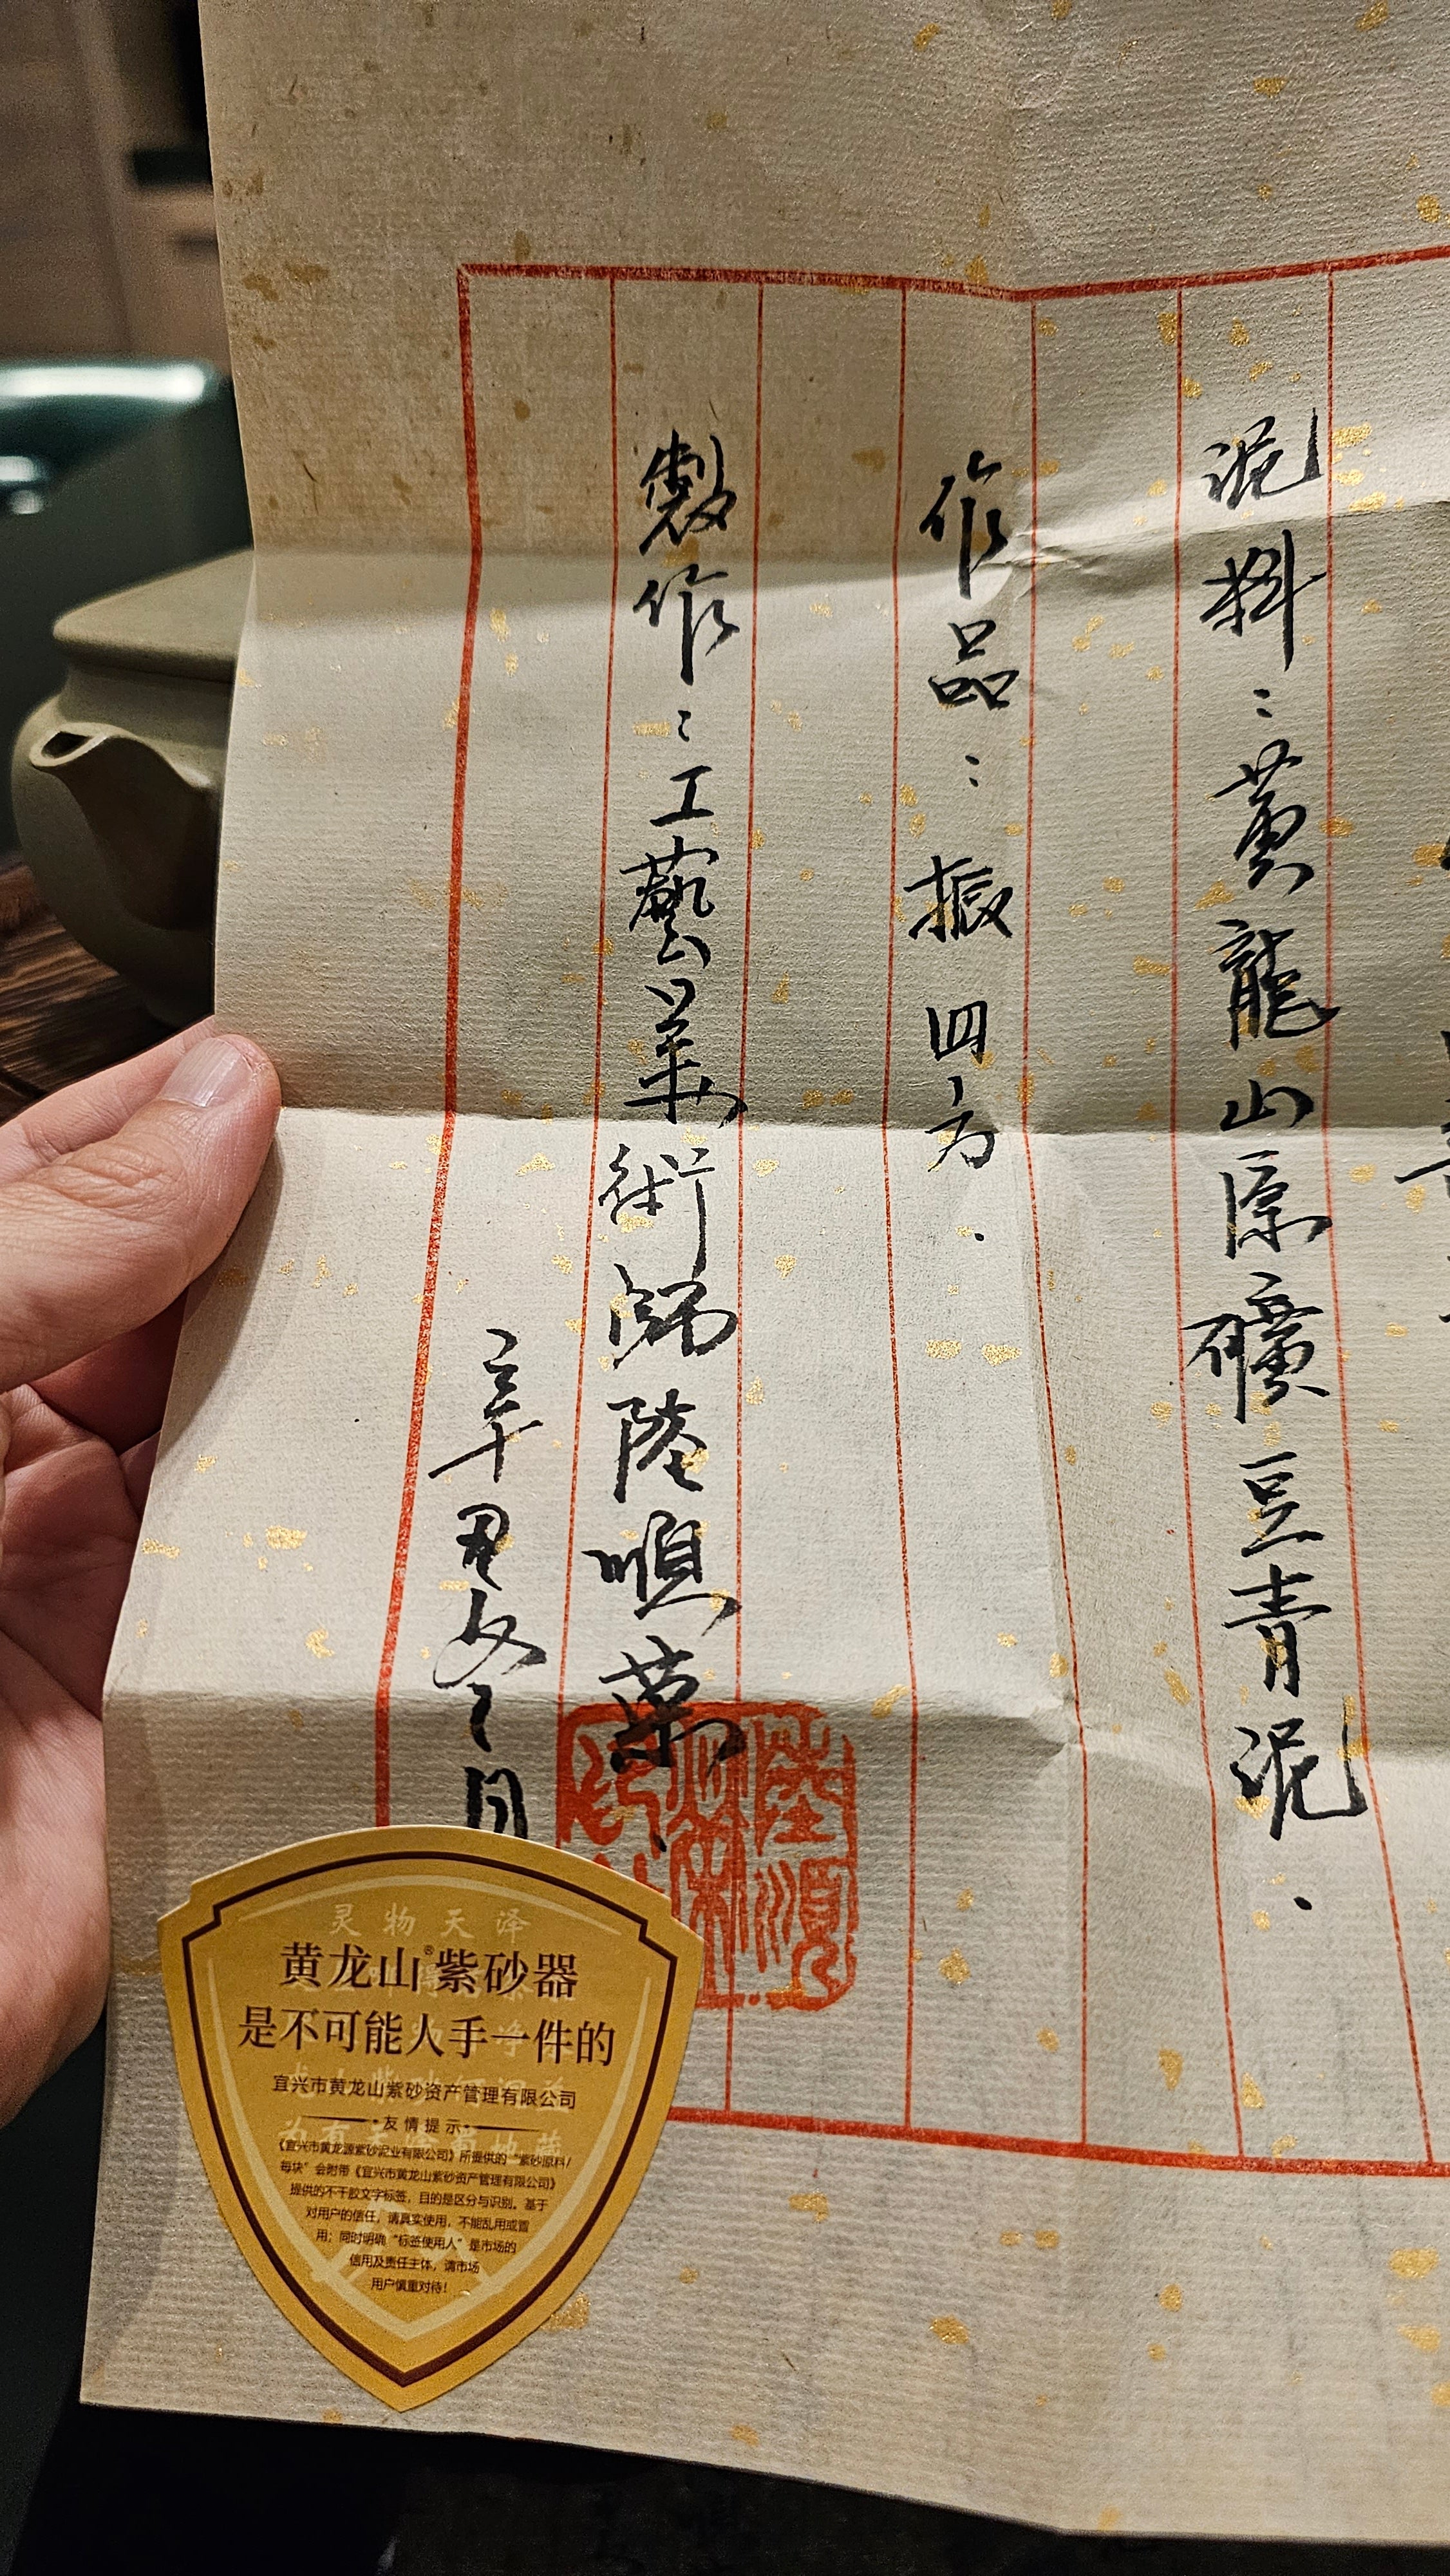 泥料：黄龍山原礦豆青泥.
作品：振四方.
製作：工藝美術師陸順菊.
辛丑年冬月
灵物天泽
黄龙山®紫砂器
是不可能人手一件的
宜兴市黄龙山紫砂资产管理有限公司
友情提示
《宜兴市黄龙源紫砂泥业有限公司》所提供的“紫砂原料/
每块”会附带《宜兴市黄龙山紫砂资产管理有限公司》
提供的不干胶文字标签，目的是区分与识别。基于
对用户的信任，请真实使用，不能乱用或冒
用；同时明确“标签使用人”是市场的
信用及责任主体，请市场
用户慎重对待！